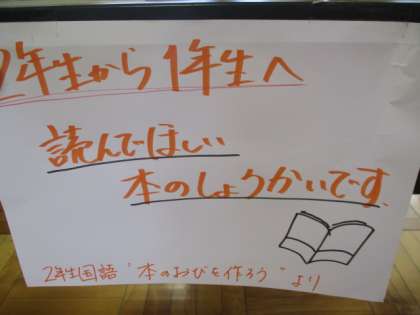 2年生から1年生へ
読んでほしい
本のしょうかいです.
2年生国語 "本のおびを作ろう" より